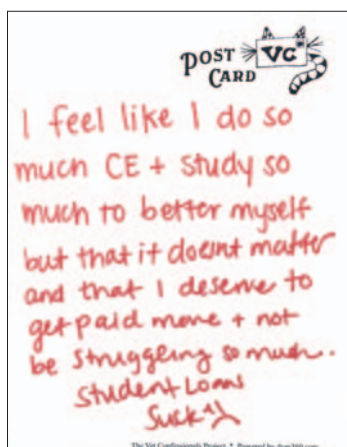 POST VC
CARD
I feel like I do so
much CE + study so
much to better myself
but that it doesnt matter
and that I deserve to
get paid more + not
be struggling so much.
Student Loans
Suck
The Vet Confessionals Project * Powered by dvm360.com